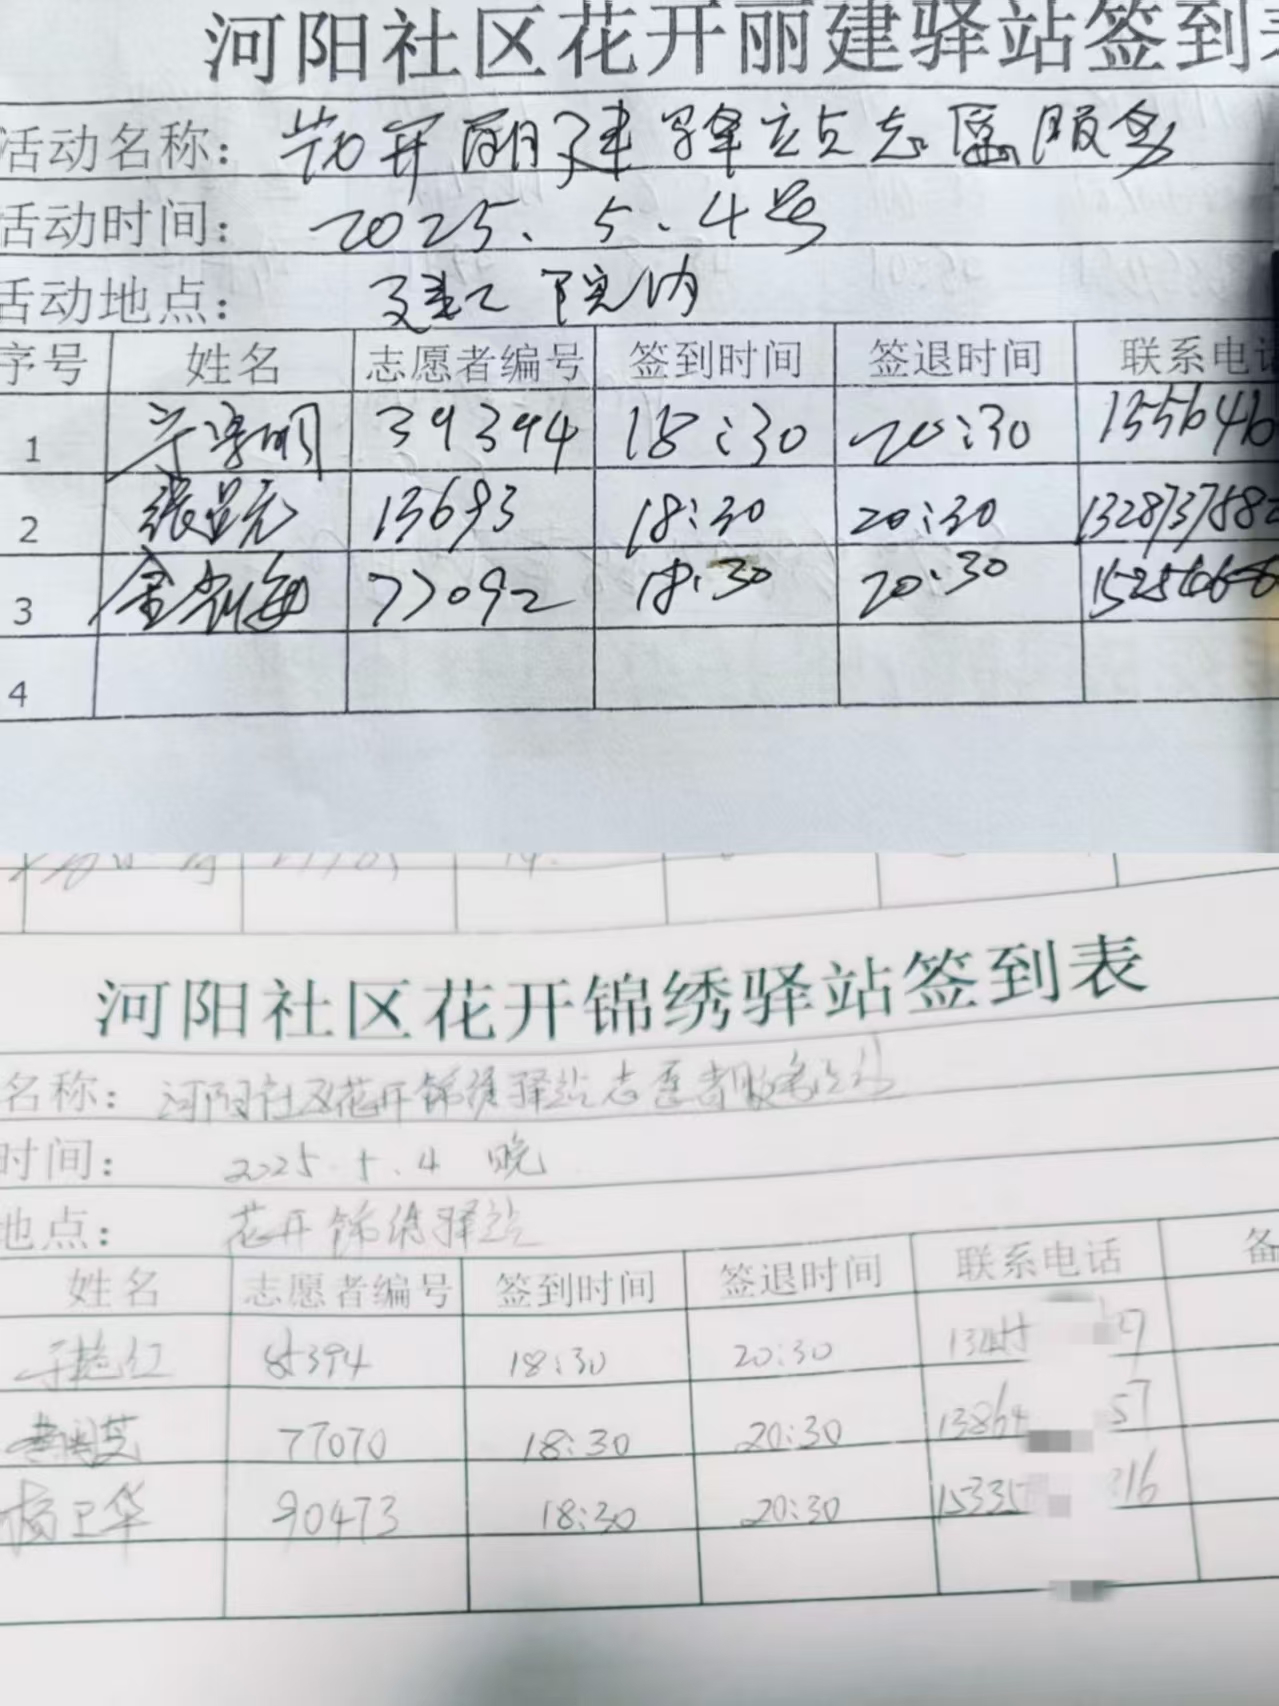 河阳社区花开丽建驿站签到
活动名称: 花开丽建驿站志愿服务
活动时间: 2025.5.4号
活动地点: 建工院内
序号 姓名 志愿者编号 签到时间 签退时间 联系电话
1 明 39394 18:30 20:30 155646
2 张显亮 13693 18:30 20:30 132873758
3 金海 77092 18:30 20:30
4
河阳社区花开锦绣驿站签到表
名称: 河阳社区花开锦绣驿站志愿者服务
时间: 2025.5.4 晚
地点: 花开锦绣驿站
姓名 志愿者编号 签到时间 签退时间 联系电话 备
于艳红 394 18:30 20:30
芝 77070 18:30 20:30 13864 57
杨卫华 90473 18:30 20:30 15335 316